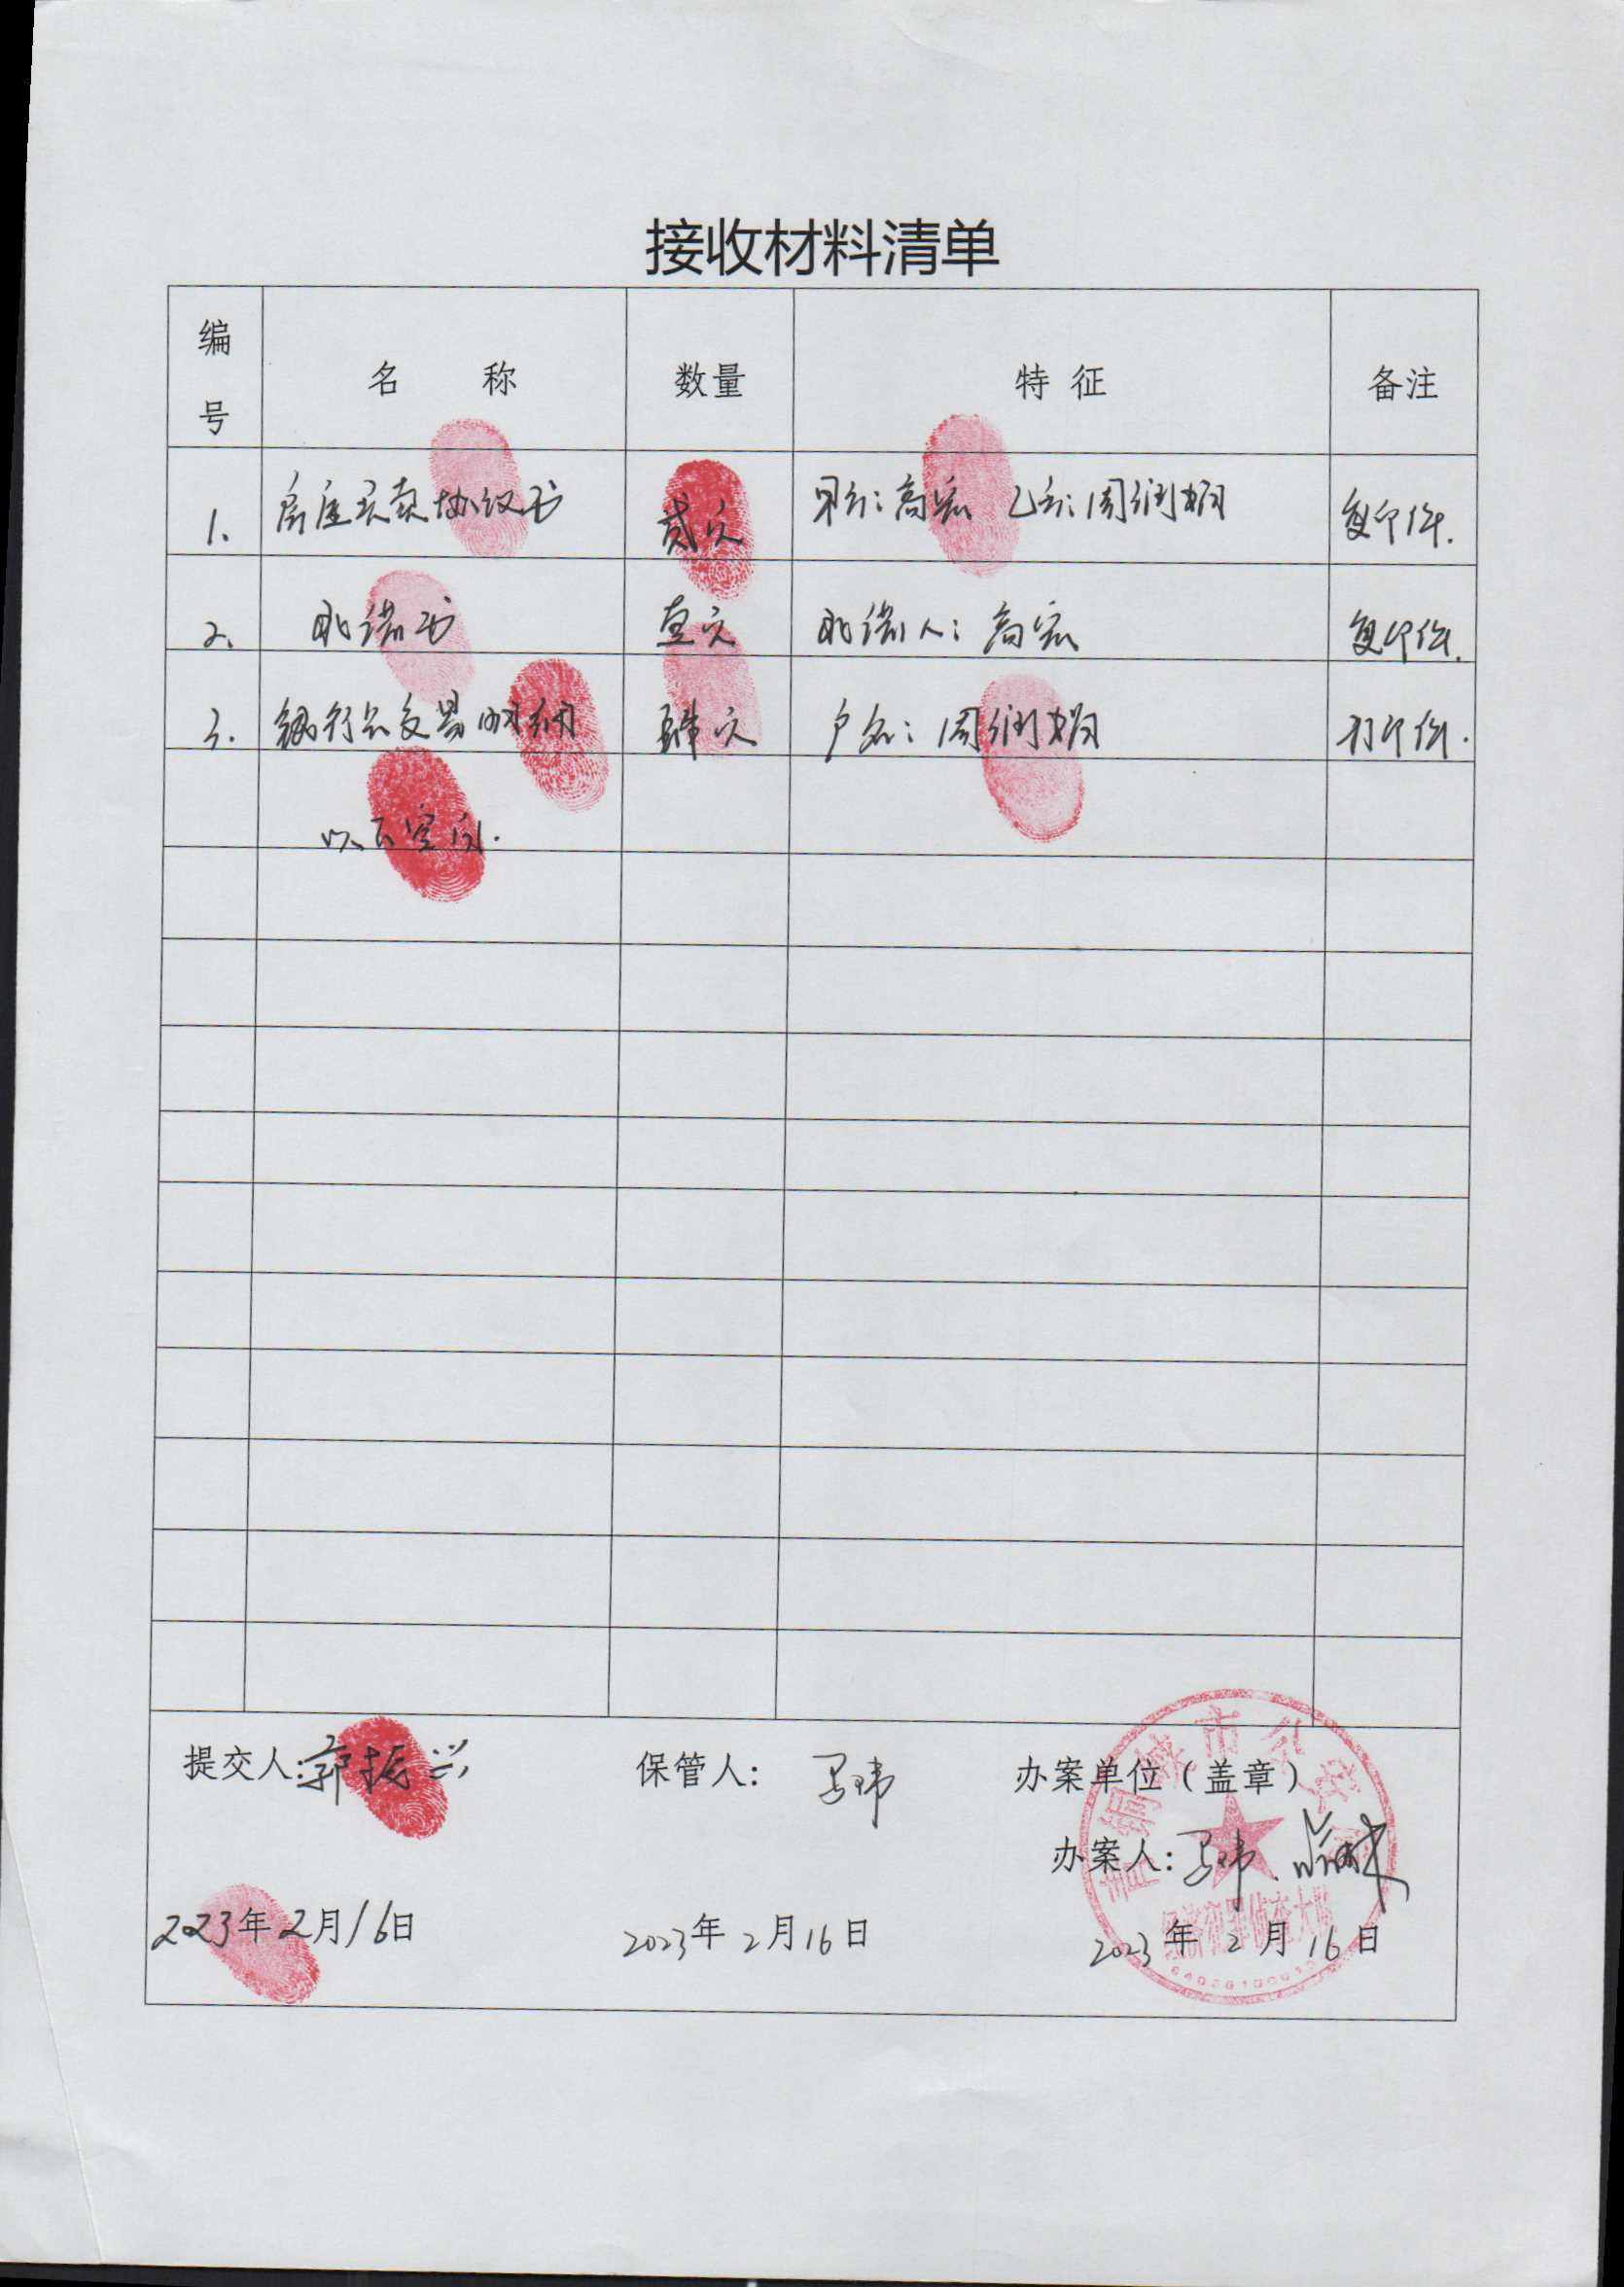 接收材料清单
编号 名 称 数量 特 征 备注
1. 房屋买卖协议书 贰页 甲方：高宏 乙方：周润娟 复印件.
2. 承诺书 壹页 承诺人：高宏 复印件.
3. 银行交易明细 页 户名：周润娟 打印件.
以下空白.
提交人：郭振兴 保管人：马玮 办案单位（盖章）
办案人：马玮.
2023年2月16日 2023年2月16日 2023年2月16日
市公安
经济犯罪侦查大队